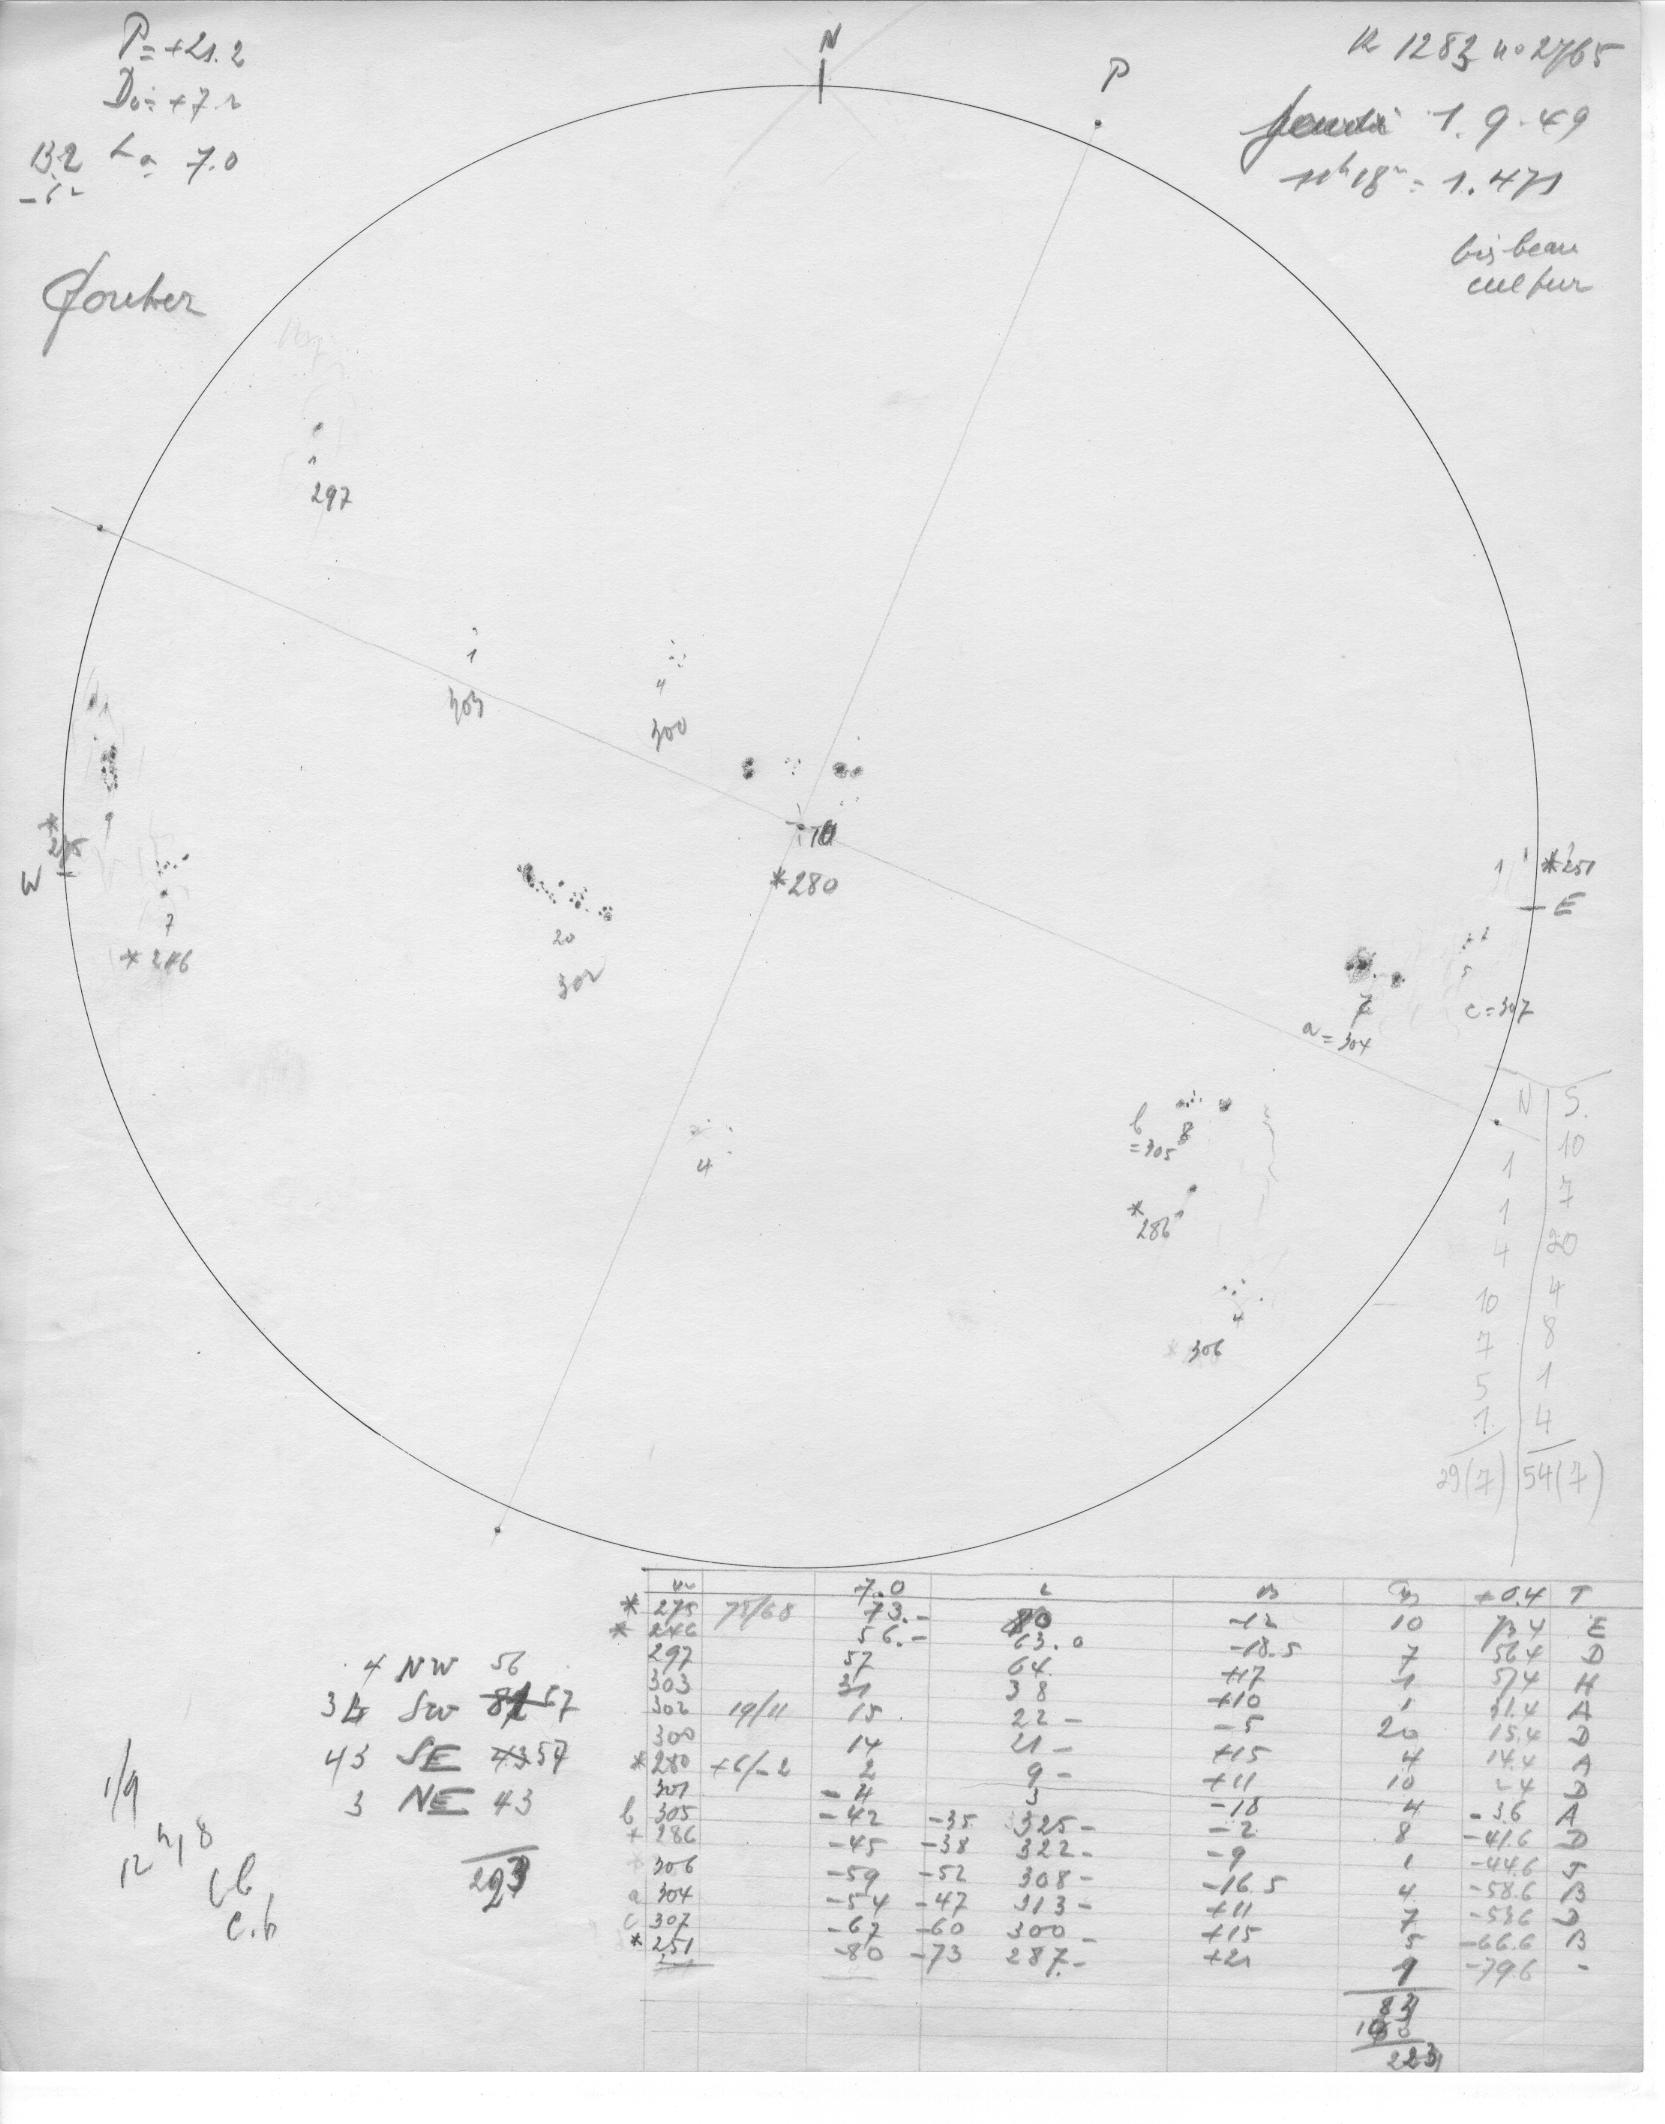 P = +21.2
D₀ = +7.2
L₀ = 7.0
N
P
R 1283 no 2765
jeudi 1.9.49
11h18m = 1.471
297
1
303
4
300
10
*280
*
275
W
9
7
*246
20
302
4
1 *251
E
5
c=307
7
a=304
b
=305
8
*
286
1
4
306
N S.
10
1 7
1 20
4 4
10 8
7 1
5 4
1
29(7) 54(7)
7.0 L B +0.4 T
* 275 75/68 73.- 80 -12 10 73.4 E
* 246 56.- 63.0 -18.5 7 56.4 D
297 57 64 +17 1 57.4 H
303 31 38 +10 1 31.4 A
302 19/11 15 22- -5 20 15.4 D
300 14 21- +15 4 14.4 A
*280 +6/-2 2 9- +11 10 2.4 D
301 -4 3 -18 4 -3.6 A
b 305 -42 -35 325- -2 8 -41.6 D
+ 286 -45 -38 322- -9 1 -44.6 J
306 -59 -52 308- -16.5 4 -58.6 B
a 304 -54 -47 313- +11 7 -53.6 D
c 307 -67 -60 300- +15 5 -66.6 B
* 251 -80 -73 287.- +21 1 -79.6 -
83
223
4 NW 56
SW 57
43 SE 57
3 NE 43
1/9